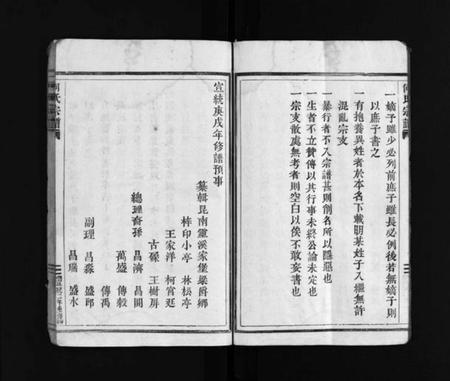 一嫡子雖少必列前庶子雖長必列後若無嫡子則
以庶子書之
一有抱養異姓者於本名下載明某姓子入繼無許
混亂宗支
一暴行者不入宗譜甚則削名所以匿惡也
一生者不立贊傳以其行事未終公論未定也
一宗支散處無考者則空白以俟不敢妄書也
何氏宗譜
宣統庚戌年修譜預事
纂輯昆南靈溪家堡梁爵鄉
梓印小亭 林松亭
王家洋 柯宵廷
古磉 王樹屏
總理裔孫 昌濟 昌開
萬盛 傳毅
傳禹
副理 昌淼 盛郎
昌瑞 盛水
何氏宗譜